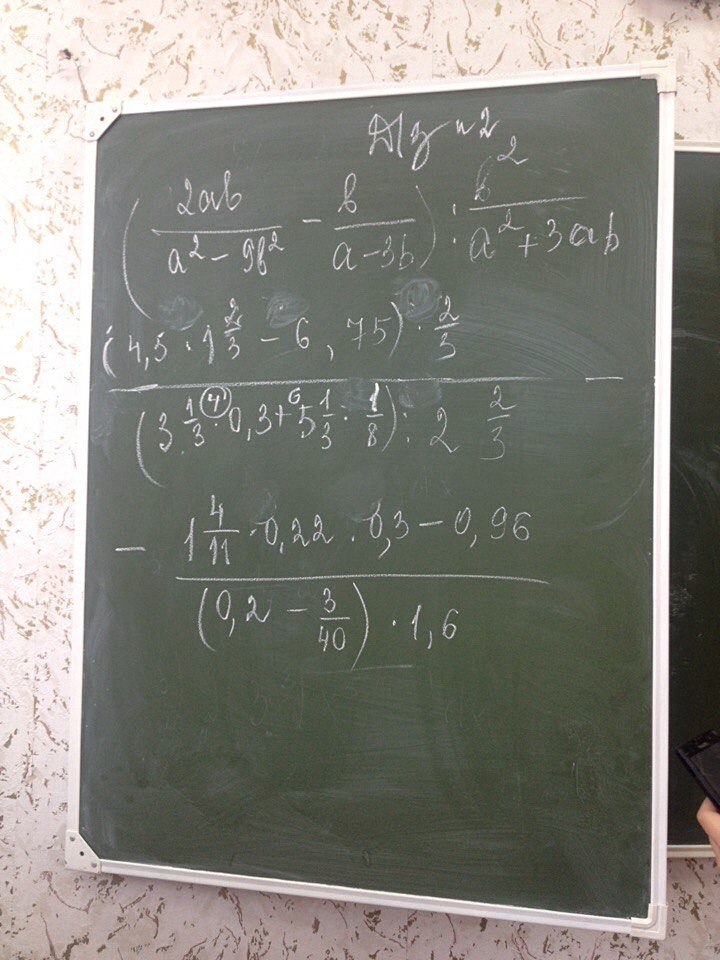 Д/з №2
(2ab/(a² - 9b²) - b/(a - 3b)) : b²/(a² + 3ab)
(4,5 · 1 2/3 - 6,75) · 2/3
(3 1/3 · 0,3 + 5 1/3 · 1/8) : 2 2/3 -
- 1 4/11 · 0,22 . 0,3 - 0,96
(0,2 - 3/40) · 1,6